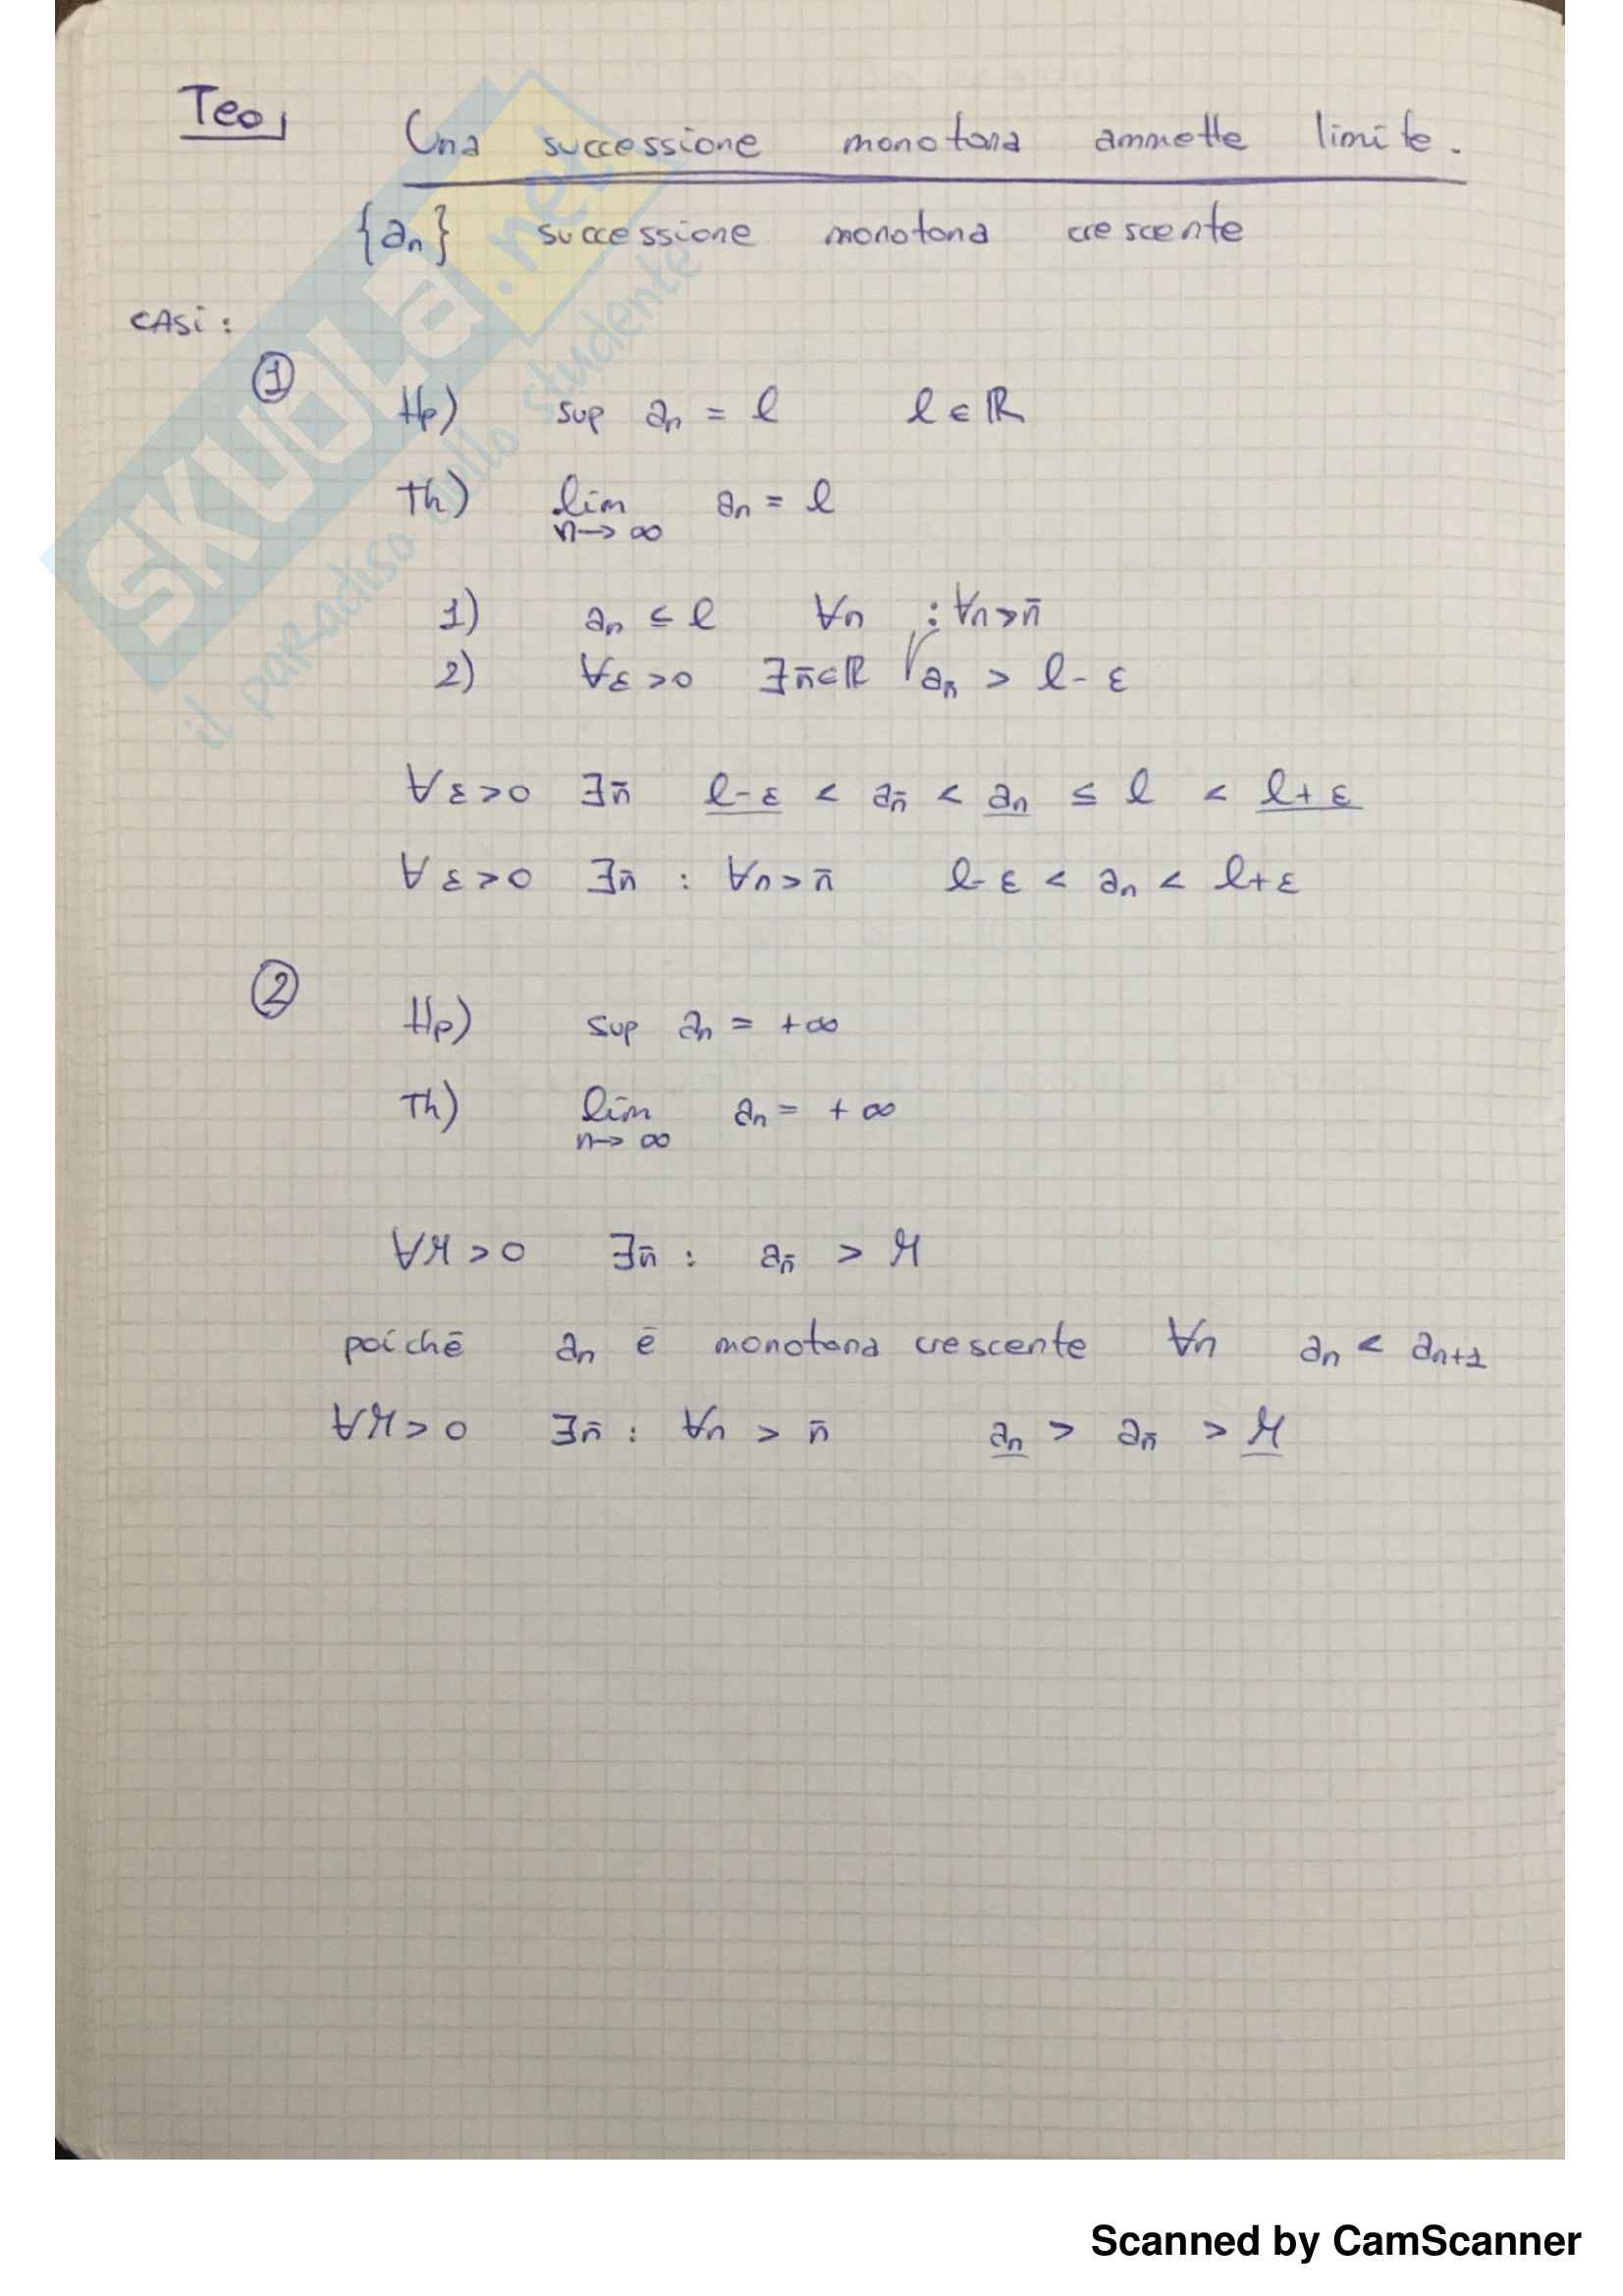 Teo
Una successione monotona ammette limite.
{an} successione monotona crescente
CASi:
①
Hp) sup an = l l ∈ ℝ
Th) lim an = l
n→∞
1) an ≤ l ∀n : ∀n>n̄
2) ∀ε>0 ∃n̄∈ℝ an̄ > l-ε
∀ε>0 ∃n̄ l-ε < an̄ < an ≤ l < l+ε
∀ε>0 ∃n̄ : ∀n>n̄ l-ε < an < l+ε
②
Hp) sup an = +∞
Th) lim an = +∞
n→∞
∀M>0 ∃n̄ : an̄ > M
poichē an ē monotona crescente ∀n an < an+1
∀M>0 ∃n̄ : ∀n > n̄ an > an̄ > M
SKUOLA.net
il paradiso dello studente
Scanned by CamScanner